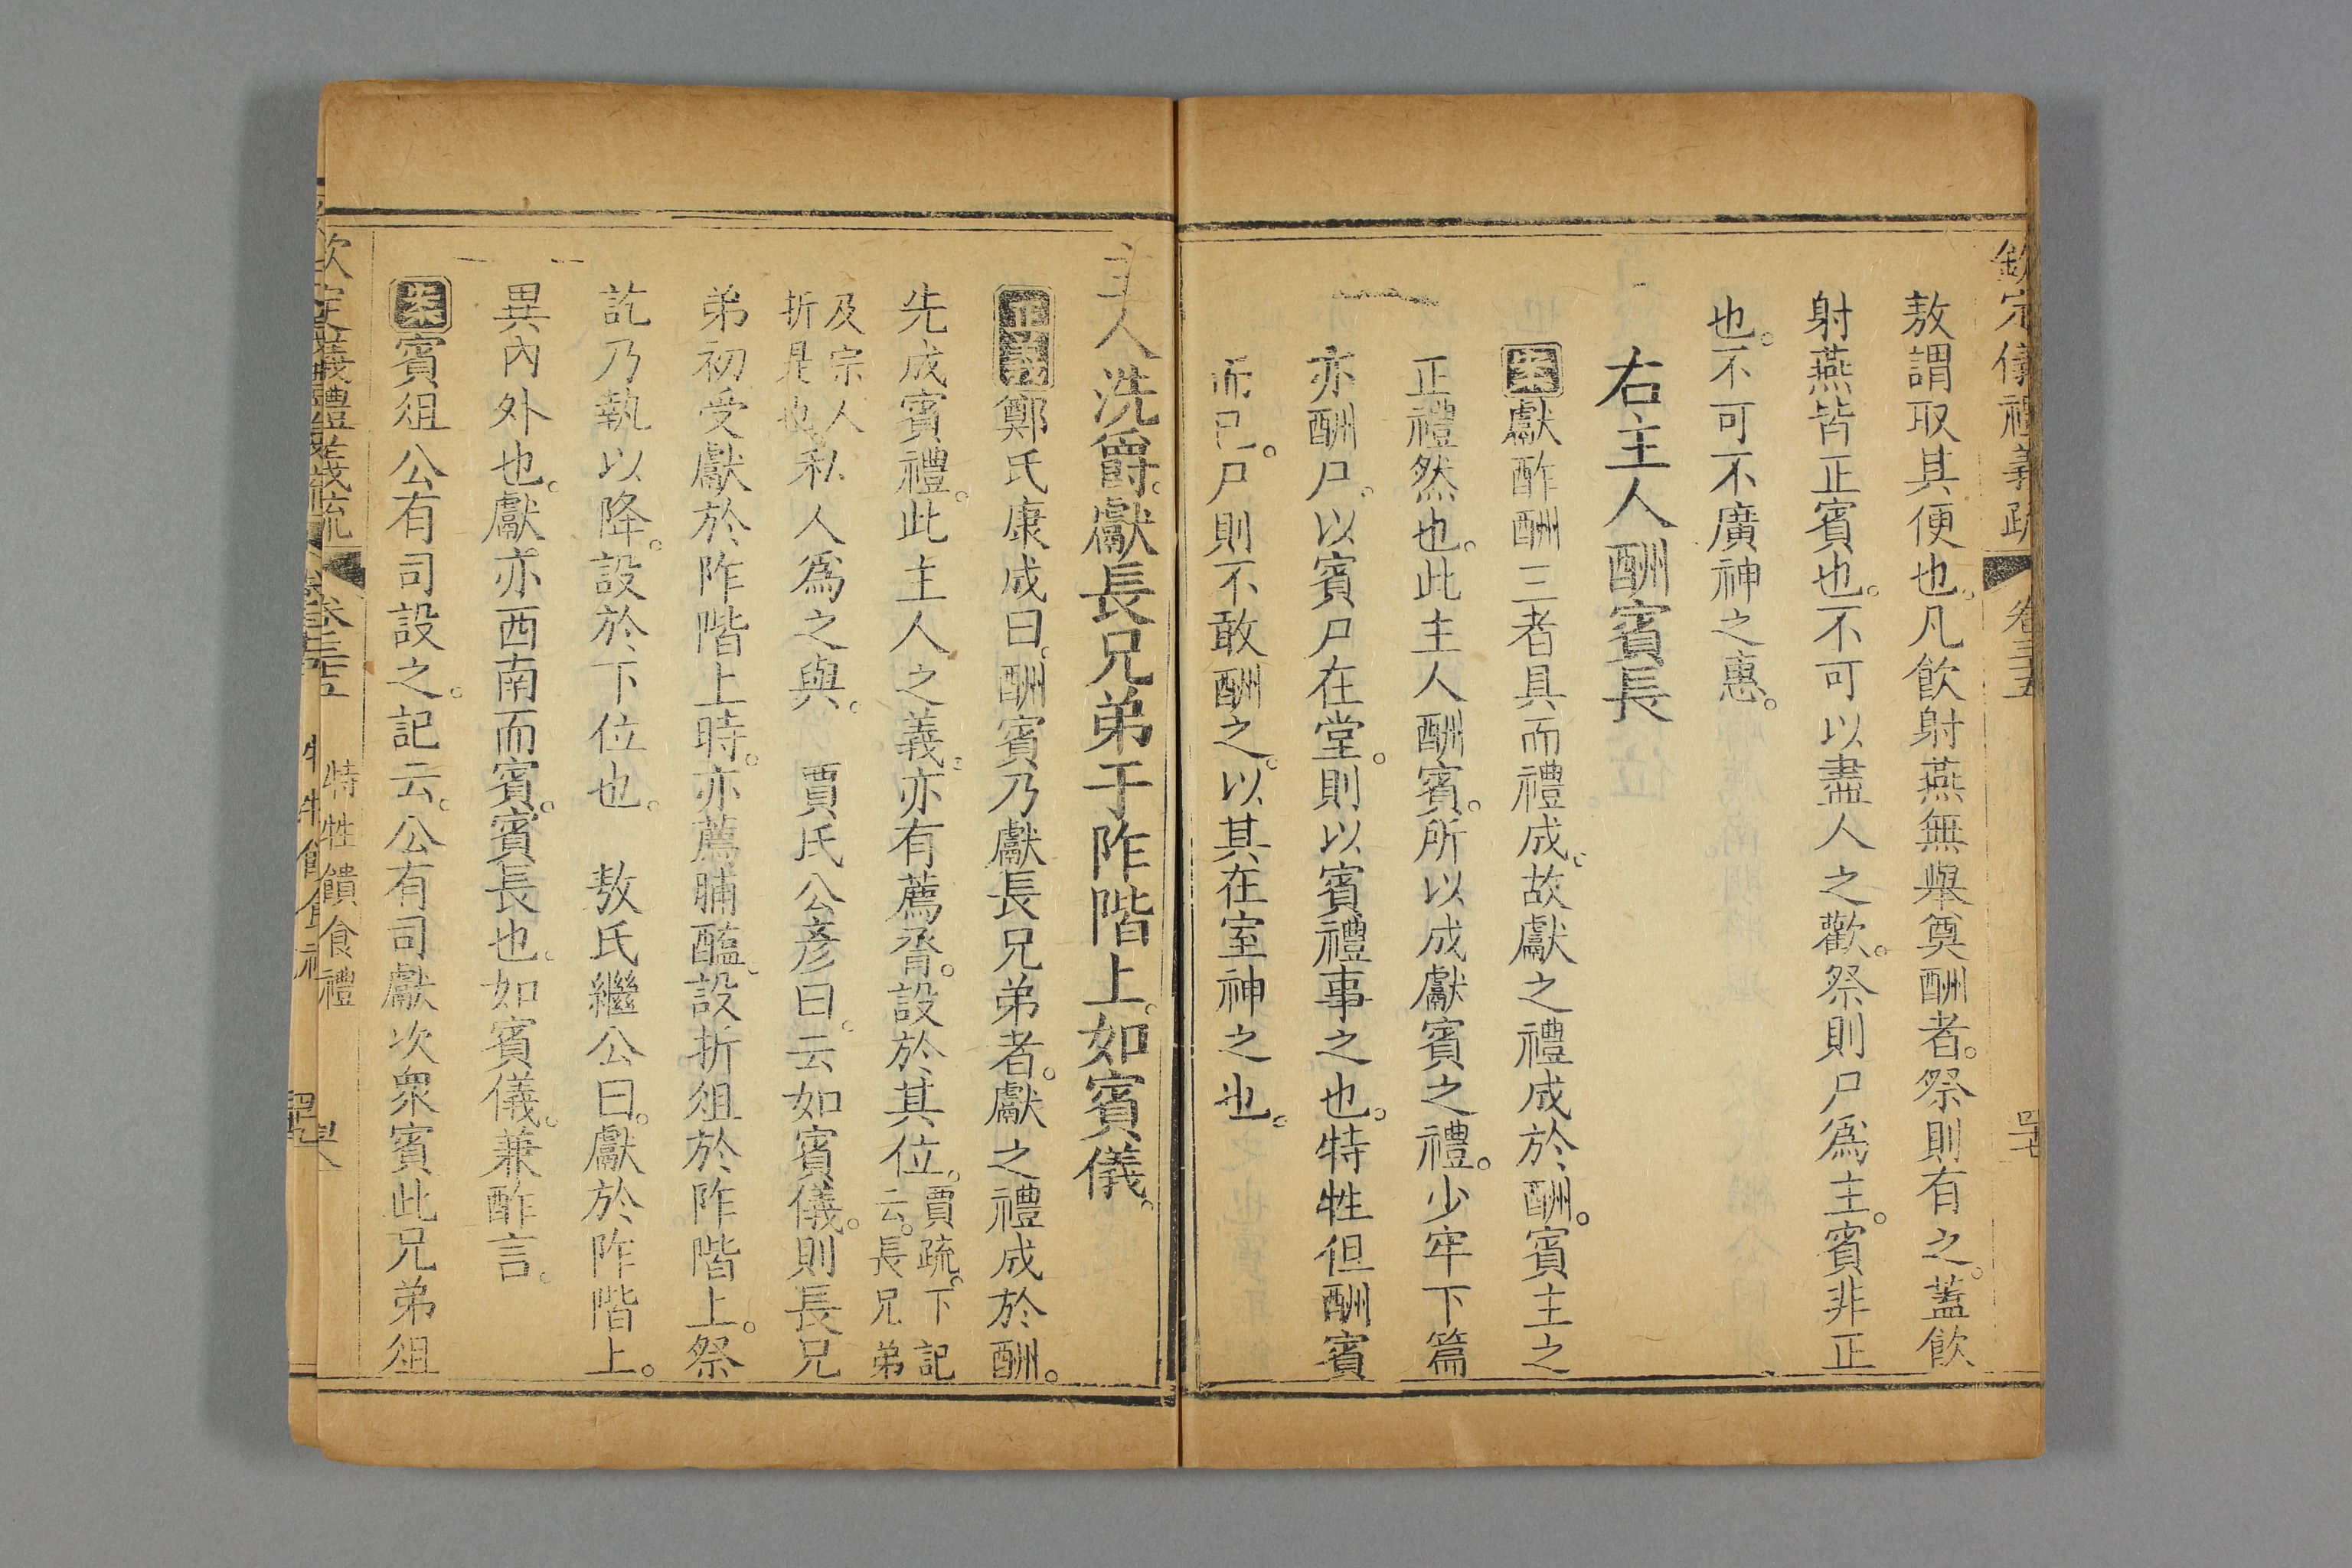 欽定儀禮義疏 卷三十五 四十七
敖謂取其便也。凡飲射燕無舉奠酬者。祭則有之。蓋飲
射燕皆正賓也。不可以盡人之歡。祭則尸爲主。賓非正
也。不可不廣神之惠。
右主人酬賓長
案獻酢酬三者具而禮成。故獻之禮成於酬。賓主之
正禮然也。此主人酬賓。所以成獻賓之禮。少牢下篇
亦酬尸。以賓尸在堂。則以賓禮事之也。特牲但酬賓
而已。尸則不敢酬之。以其在室神之也。
主人洗爵。獻長兄弟于阼階上。如賓儀。
正義鄭氏康成曰。酬賓乃獻長兄弟者。獻之禮成於酬。
先成賓禮。此主人之義。亦有薦脀。設於其位。賈疏。下記云。長兄弟
及宗人折是也。私人爲之與。 賈氏公彥曰。云如賓儀。則長兄
弟初受獻於阼階上時。亦薦脯醢。設折俎於阼階上。祭
訖乃執以降。設於下位也。 敖氏繼公曰。獻於阼階上。
異內外也。獻亦西南面。賓。賓長也。如賓儀。兼酢言。
案賓俎公有司設之。記云。公有司獻次衆賓此兄弟俎
欽定儀禮義疏 卷三十五 特牲饋食禮